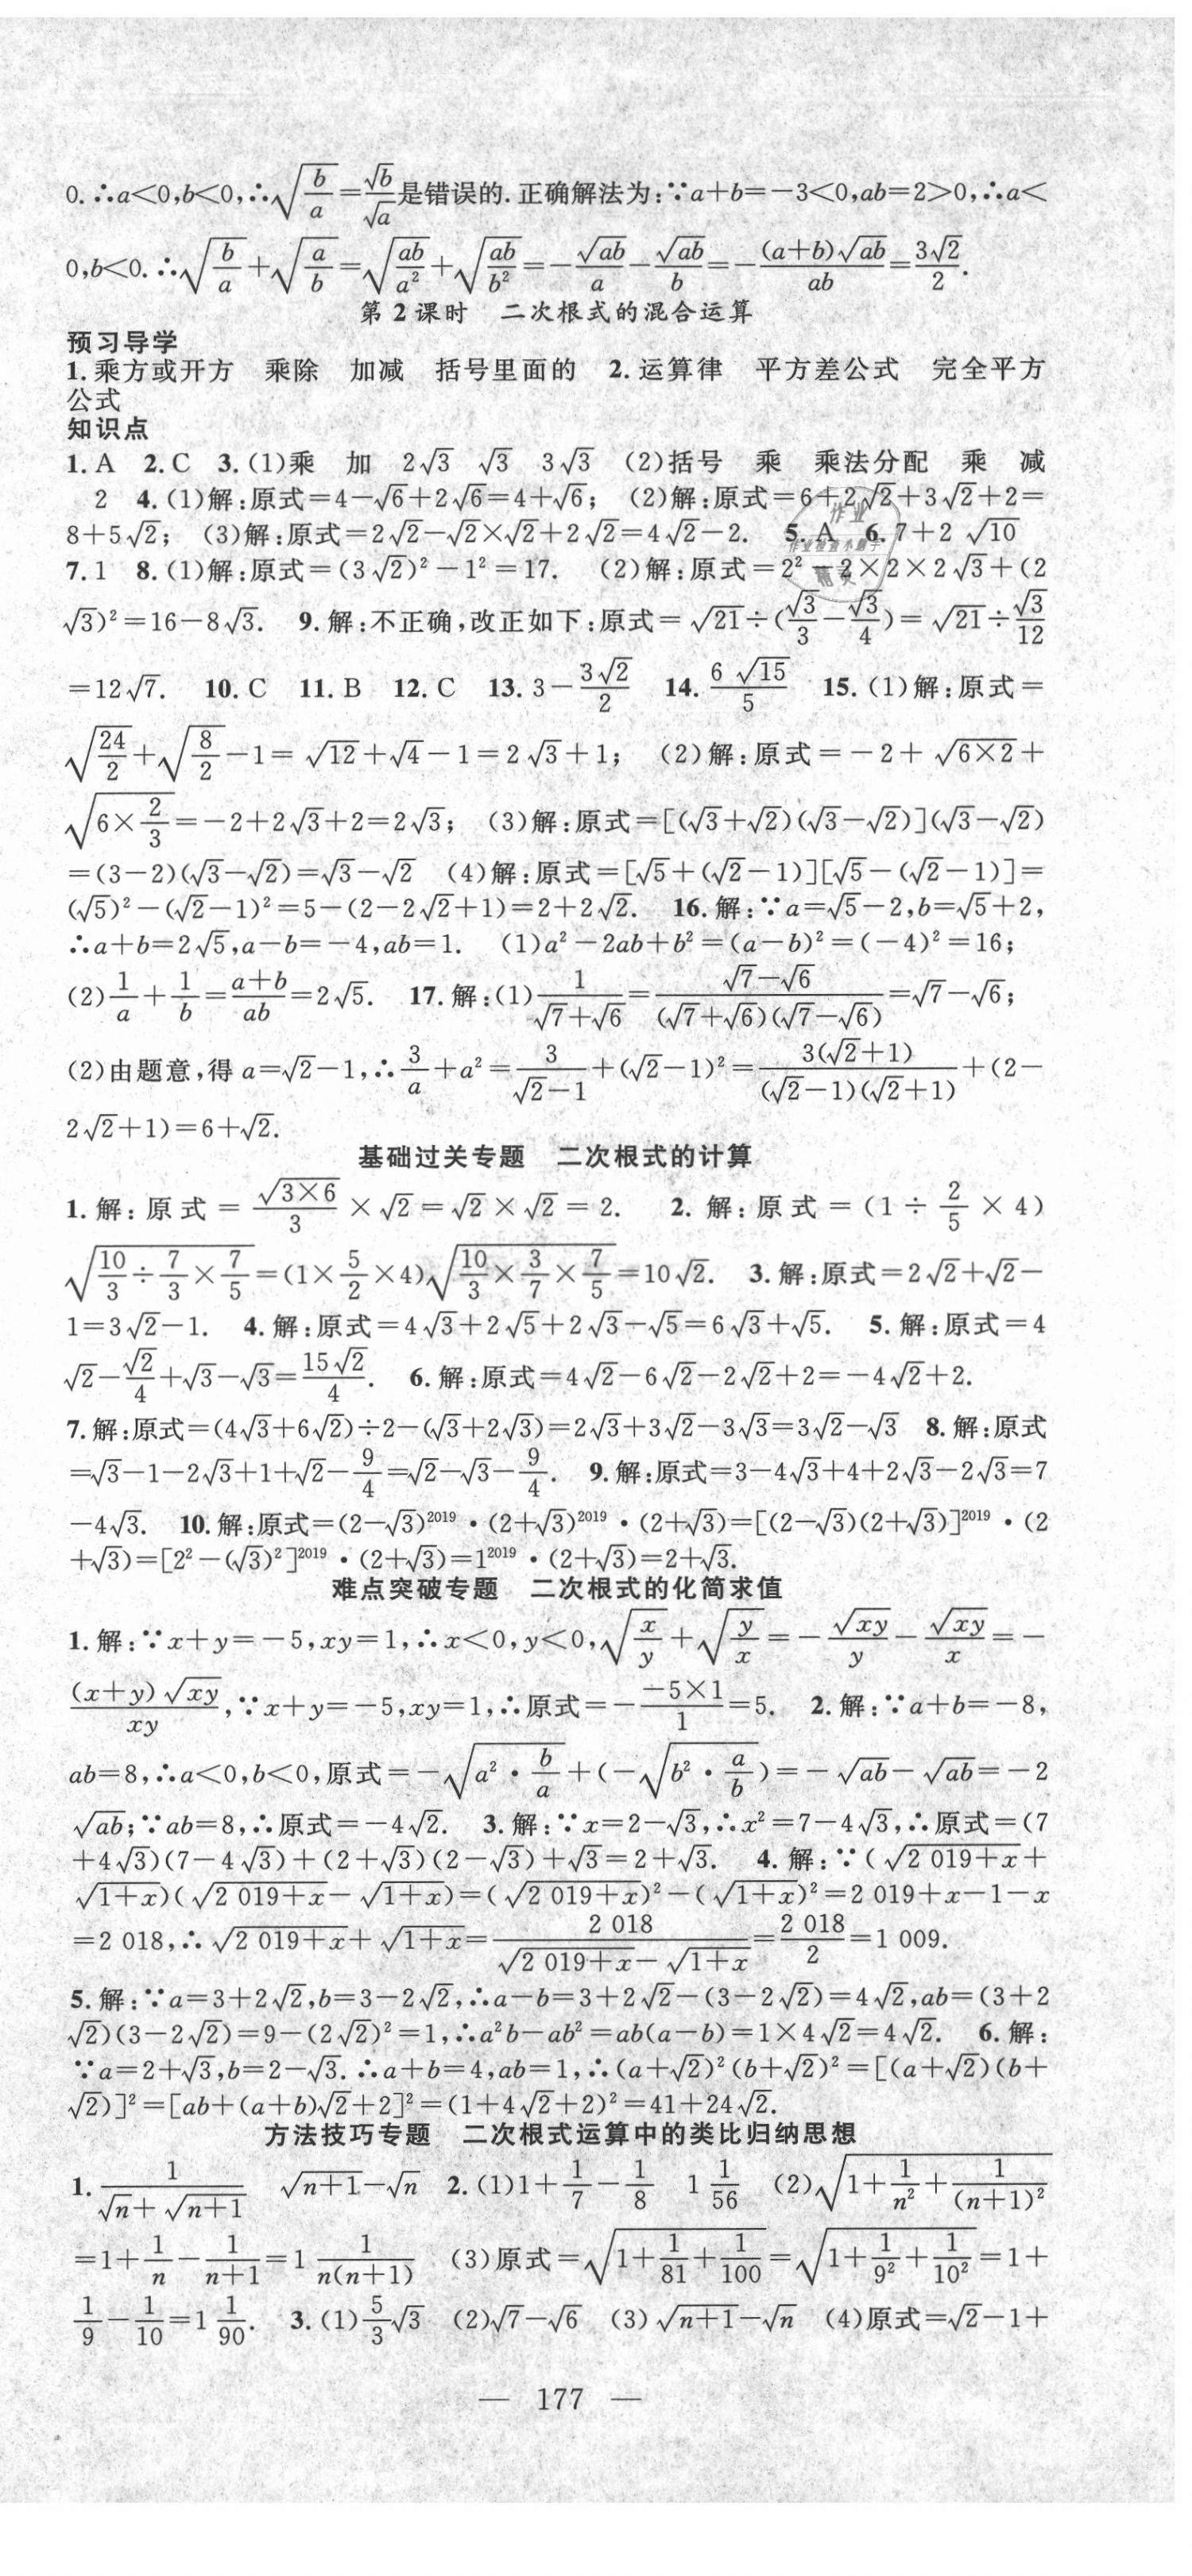 0.∴a<0,b<0,∴√(b/a)=√b/√a是错误的.正确解法为:∵a+b=-3<0,ab=2>0,∴a<
0,b<0.∴√(b/a)+√(a/b)=√(ab/a²)+√(ab/b²)=-√ab/a-√ab/b=-(a+b)√ab/ab=3√2/2.
第2课时 二次根式的混合运算
预习导学
1.乘方或开方 乘除 加减 括号里面的 2.运算律 平方差公式 完全平方
公式
知识点
1.A 2.C 3.(1)乘 加 2√3 √3 3√3 (2)括号 乘 乘法分配 乘 减
2 4.(1)解:原式=4-√6+2√6=4+√6; (2)解:原式=6+2√2+3√2+2=
8+5√2; (3)解:原式=2√2-√2×√2+2√2=4√2-2. 5.A 6.7+2√10
7.1 8.(1)解:原式=(3√2)²-1²=17. (2)解:原式=2²-2×2×2√3+(2
√3)²=16-8√3. 9.解:不正确,改正如下:原式=√21÷(√3/3-√3/4)=√21÷√3/12
=12√7. 10.C 11.B 12.C 13.3-3√2/2 14.6√15/5 15.(1)解:原式=
√(24/2)+√(8/2)-1=√12+√4-1=2√3+1; (2)解:原式=-2+√(6×2)+
√(6×2/3)=-2+2√3+2=2√3; (3)解:原式=[(√3+√2)(√3-√2)](√3-√2)
=(3-2)(√3-√2)=√3-√2 (4)解:原式=[√5+(√2-1)][√5-(√2-1)]=
(√5)²-(√2-1)²=5-(2-2√2+1)=2+2√2. 16.解:∵a=√5-2,b=√5+2,
∴a+b=2√5,a-b=-4,ab=1. (1)a²-2ab+b²=(a-b)²=(-4)²=16;
(2)1/a+1/b=(a+b)/ab=2√5. 17.解:(1)1/(√7+√6)=(√7-√6)/((√7+√6)(√7-√6))=√7-√6;
(2)由题意,得a=√2-1,∴3/a+a²=3/(√2-1)+(√2-1)²=3(√2+1)/((√2-1)(√2+1))+(2-
2√2+1)=6+√2.
基础过关专题 二次根式的计算
1.解:原式=√(3×6)/3×√2=√2×√2=2. 2.解:原式=(1÷2/5×4)
√(10/3÷7/3×7/5)=(1×5/2×4)√(10/3×3/7×7/5)=10√2. 3.解:原式=2√2+√2-
1=3√2-1. 4.解:原式=4√3+2√5+2√3-√5=6√3+√5. 5.解:原式=4
√2-√2/4+√3-√3=15√2/4. 6.解:原式=4√2-6√2-2√2+2=-4√2+2.
7.解:原式=(4√3+6√2)÷2-(√3+2√3)=2√3+3√2-3√3=3√2-√3 8.解:原式
=√3-1-2√3+1+√2-9/4=√2-√3-9/4. 9.解:原式=3-4√3+4+2√3-2√3=7
-4√3. 10.解:原式=(2-√3)²⁰¹⁹·(2+√3)²⁰¹⁹·(2+√3)=[(2-√3)(2+√3)]²⁰¹⁹·(2
+√3)=[2²-(√3)²]²⁰¹⁹·(2+√3)=1²⁰¹⁹·(2+√3)=2+√3.
难点突破专题 二次根式的化简求值
1.解:∵x+y=-5,xy=1,∴x<0,y<0,√(x/y)+√(y/x)=-√xy/y-√xy/x=-
(x+y)√xy/xy,∵x+y=-5,xy=1,∴原式=-(-5×1)/1=5. 2.解:∵a+b=-8,
ab=8,∴a<0,b<0,原式=-√(a²·b/a)+(-√(b²·a/b))=-√ab-√ab=-2
√ab;∵ab=8,∴原式=-4√2. 3.解:∵x=2-√3,∴x²=7-4√3,∴原式=(7
+4√3)(7-4√3)+(2+√3)(2-√3)+√3=2+√3. 4.解:∵(√(2 019+x)+
√(1+x))(√(2 019+x)-√(1+x))=(√(2 019+x))²-(√(1+x))²=2 019+x-1-x
=2 018,∴√(2 019+x)+√(1+x)=2 018/(√(2 019+x)-√(1+x))=2 018/2=1 009.
5.解:∵a=3+2√2,b=3-2√2,∴a-b=3+2√2-(3-2√2)=4√2,ab=(3+2
√2)(3-2√2)=9-(2√2)²=1,∴a²b-ab²=ab(a-b)=1×4√2=4√2. 6.解:
∵a=2+√3,b=2-√3.∴a+b=4,ab=1,∴(a+√2)²(b+√2)²=[(a+√2)(b+
√2)]²=[ab+(a+b)√2+2]²=(1+4√2+2)²=41+24√2.
方法技巧专题 二次根式运算中的类比归纳思想
1.1/(√n+√(n+1)) √(n+1)-√n 2.(1)1+1/7-1/8 1 1/56 (2)√(1+1/n²+1/(n+1)²)
=1+1/n-1/(n+1)=1 1/(n(n+1)) (3)原式=√(1+1/81+1/100)=√(1+1/9²+1/10²)=1+
1/9-1/10=1 1/90. 3.(1)5/3√3 (2)√7-√6 (3)√(n+1)-√n (4)原式=√2-1+
— 177 —